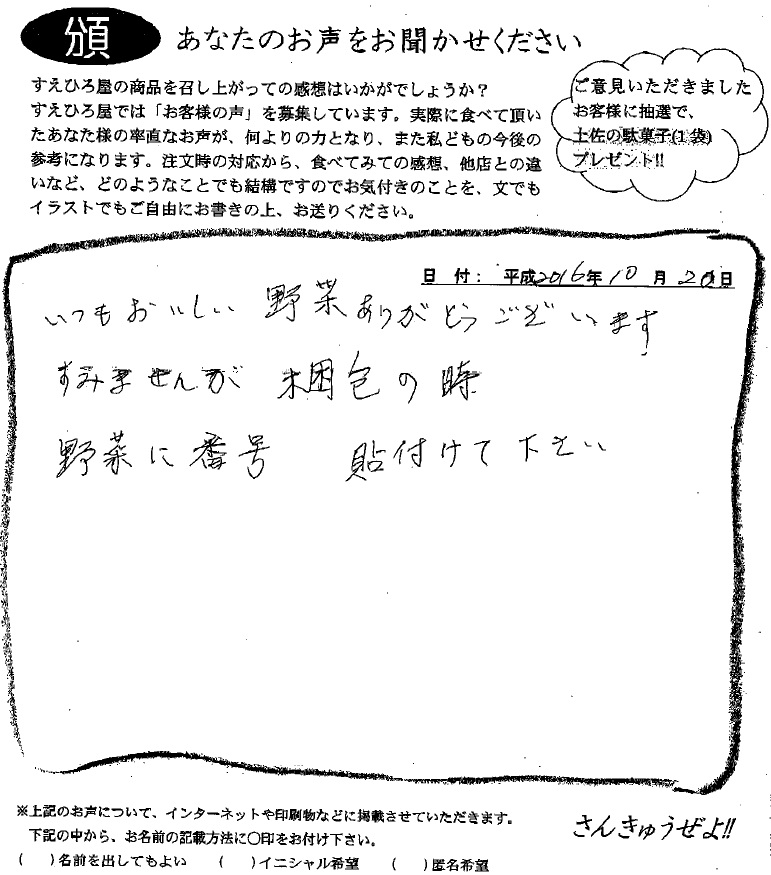 頒 あなたのお声をお聞かせください
すえひろ屋の商品を召し上がっての感想はいかがでしょうか？
すえひろ屋では「お客様の声」を募集しています。実際に食べて頂い
たあなた様の率直なお声が、何よりの力となり、また私どもの今後の
参考になります。注文時の対応から、食べてみての感想、他店との違
いなど、どのようなことでも結構ですのでお気付きのことを、文でも
イラストでもご自由にお書きの上、お送りください。
ご意見いただきました
お客様に抽選で、
土佐の駄菓子(1袋)
プレゼント!!
日 付： 平成2016年10月20日
いつもおいしい 野菜ありがとうございます
すみませんが 梱包の時
野菜に番号 貼付けて下さい
※上記のお声について、インターネットや印刷物などに掲載させていただきます。
下記の中から、お名前の記載方法に〇印をお付け下さい。
(　)名前を出してもよい (　)イニシャル希望 (　)匿名希望
さんきゅうぜよ!!